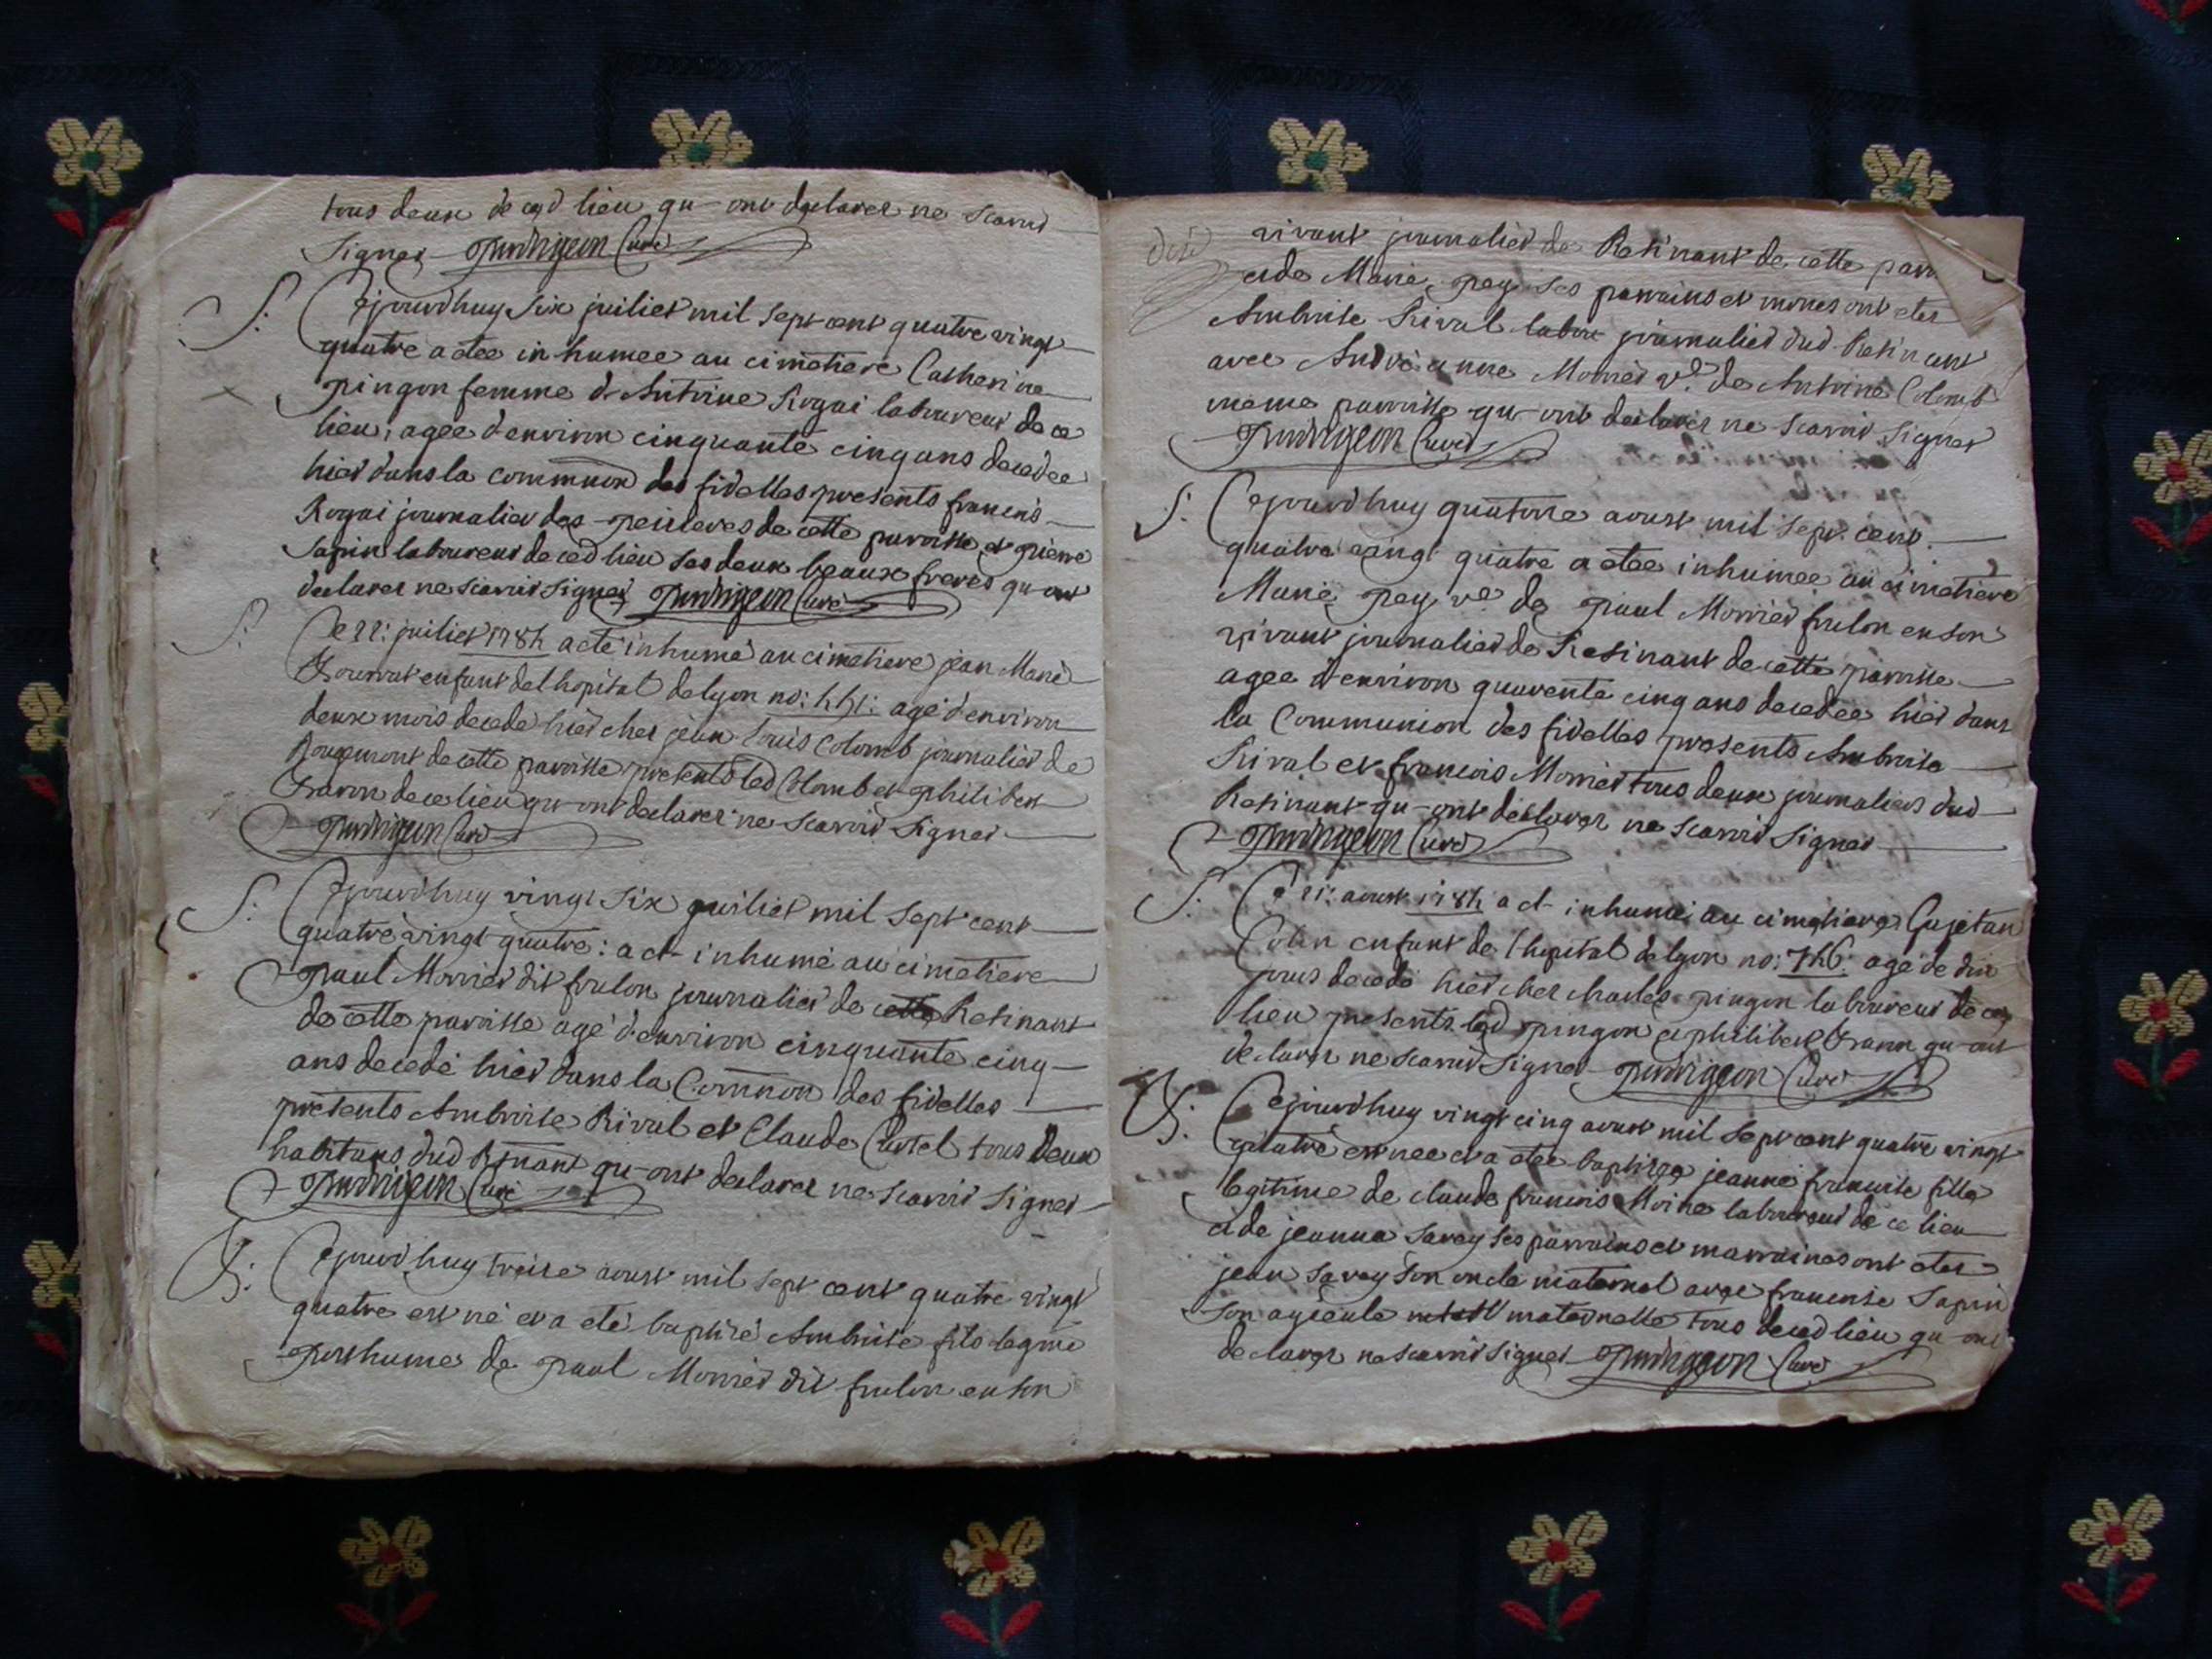 tous deux de ced lieu qu-ont declarer ne scavoir
signer curé
S: Cejourdhuy six juiliet mil sept cent quatre vingt
quatre a etee inhumee au cimetiere Catherine
pingon femme d'Antoine Rogai laboureur de ce
lieu, agee d'environ cinquante cinq ans decedee
hier dans la commuon des fidelles presents francois
Rogai journalier des de cette paroisse et pierre
sapin laboureur de ced lieu ses deux beaux freres qu-ont
declarer ne scavoir signer curé
S: Ce 22: juiliet 1784 a ete inhumé au cimetiere jean Marie
enfant del hopital de lyon no: 441: agé d'environ
deux mois decede hier ches jean Louis Colomb journalier de
Rougemont de cette paroisse presents led Colomb et philibert
de ce lieu qu-ont declarer ne scavoir signer
curé
S: Cejourdhuy vingt six juiliet mil sept cent
quatre vingt quatre: a et- inhumé au cimetiere
paul Morrier dit foulon journalier de cette Retinant
de cette paroisse agé d'environ cinquante cinq
ans decedé hier dans la Commuon des fidelles
presents Ambroise Rival et Claude Curtel tous deux
habitans dud Rtinant qu-ont declarer ne scavoir signer
curé
B: Cejourdhuy treize aoust mil sept cent quatre vingt
quatre est né et a eté baptizé Ambroise fils legme
posthume de paul Morrier dit foulon en son
vivant journalier de Retinant de cette parr
et de Marie pey ses parrains et mones ont eter
Ambroise Rival labou journalier dud Retinant
avec Andréanne Morrier ve de Antoine Colomb
meme parroisse qu-ont declarer ne scavoir signer
curé
S: Cejourdhuy quatorze aoust mil sept cent
quatre vingt quatre a etee inhumee au cimetiere
Marie pey ve de paul Morrier foulon en son
vivant journalier de Retinant de cette paroisse
agee d'environ quarente cinq ans decedee hier dans
la Communion des fidelles presents Ambroise
Rival et francois Morrier tous deux journaliers dud
Retinant qu-ont declarer ne scavoir signer
curé
S: Ce 21: aoust 1784 a et- inhumé au cimetiere Gajetan
Colin enfant de l'hopital de lyon no: 746: agé de dix
jours decedé hier ches charles pingon laboureur de ce
lieu presents led pingon et philibert qu-ont
declarer ne scavoir signer curé
B: Cejourdhuy vingt cinq aoust mil sept cent quatre vingt
quatre est nee et a etee baptizee jeanne francoise fille
legitime de claude francois Moine laboureur de ce lieu
et de jeanne savey ses parrains et marraines ont eter
jean savey son oncle maternel avec francoise sapin
son ayieule maternelle tous de ced lieu qu-ont
declarer ne scavoir signer curé